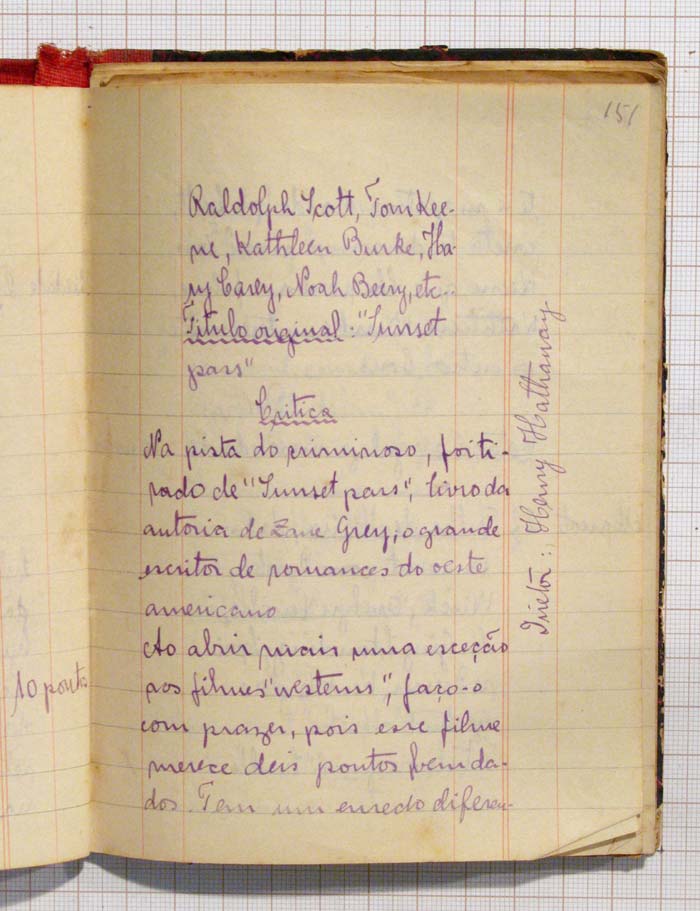 151
Raldolph Scott, Tom Kee-
ne, Kathleen Burke, Ha-
ry Carey, Noah Beery, etc..
Titulo original: "Sunset
pass"
Critica
Na pista do criminoso, foi ti-
rado de "Sunset pass", livro da
autoria de Zane Grey, o grande
escritor de romances do oeste
americano
Ao abrir mais uma exceção
aos filmes "westerns", faço-o
com prazer, pois esse filme
merece deis pontos bem da-
dos. Tem um enredo diferen-
Diretôr: Henry Hathaway
10 pontos